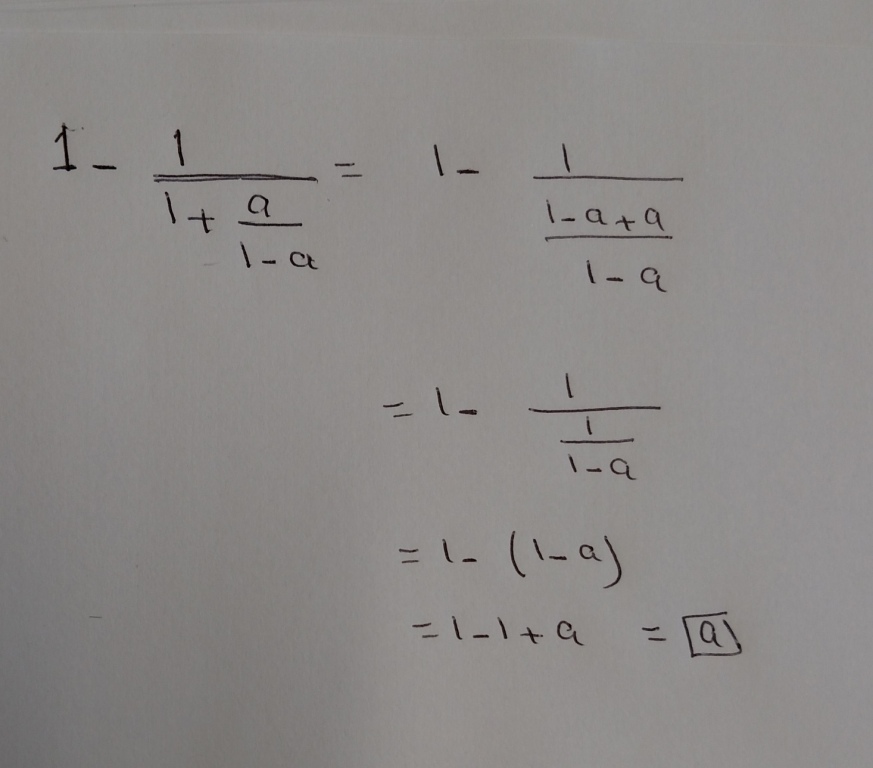 1 - 1/(1 + a/(1 - a)) = 1 - 1/((1 - a + a)/(1 - a))
= 1 - 1/(1/(1 - a))
= 1 - (1 - a)
= 1 - 1 + a = a